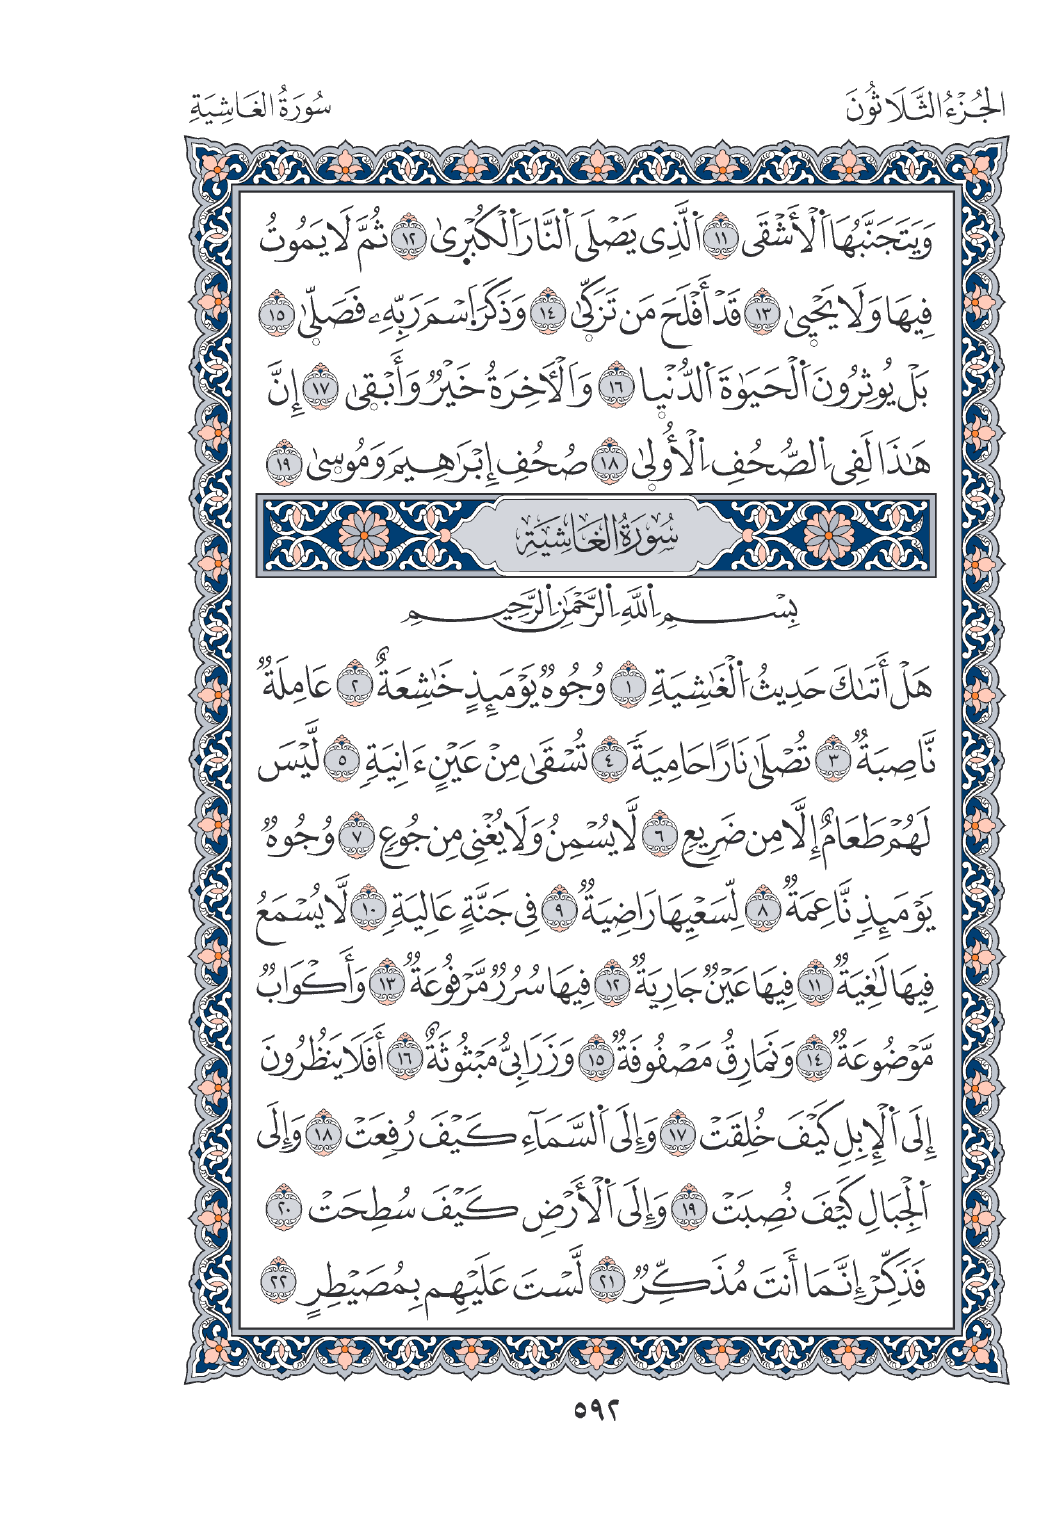 الجُزْءُ الثَّلَاثُونَ
سُورَةُ الغَاشِيَةِ
وَيَتَجَنَّبُهَا اَ۬لْأَشْقَى ١١ اَ۬لَّذِى يَصْلَى اَ۬لنَّارَ اَ۬لْكُبْر۪ىٰ ١٢ ثُمَّ لَا يَمُوتُ
فِيهَا وَلَا يَحْي۪ىٰ ١٣ قَدْ أَفْلَحَ مَن تَزَكّ۪ىٰ ١٤ وَذَكَرَ اَ۪سْمَ رَبِّهِۦ فَصَلّ۪ىٰ ١٥
بَلْ يُوثِرُونَ اَ۬لْحَيَوٰةَ اَ۬لدُّنْي۪ا ١٦ وَاَلْأٓخِرَةُ خَيْرٌ وَأَبْق۪ىٰ ١٧ إِنَّ
هَٰذَا لَفِى اِ۬لصُّحُفِ اِ۬لْأُول۪ىٰ ١٨ صُحُفِ إِبْرَٰهِيمَ وَمُوس۪ىٰ ١٩
سُورَةُ الغَاشِيَةِ
بِسْمِ اِ۬للَّهِ اِ۬لرَّحْمَٰنِ اِ۬لرَّحِيمِ
هَلْ أَتَىٰكَ حَدِيثُ اُ۬لْغَٰشِيَةِ ١ وُجُوهٌ يَوْمَئِذٍ خَٰشِعَةٌ ٢ عَامِلَةٌ
نَّاصِبَةٌ ٣ تُصْلَىٰ نَارًا حَامِيَةً ٤ تُسْقَىٰ مِنْ عَيْنٍ ءَانِيَةٍ ٥ لَّيْسَ
لَهُمْ طَعَامٌ إِلَّا مِن ضَرِيعٍ ٦ لَّا يُسْمِنُ وَلَا يُغْنِى مِن جُوعٍ ٧ وُجُوهٌ
يَوْمَئِذٍ نَّاعِمَةٌ ٨ لِّسَعْيِهَا رَاضِيَةٌ ٩ فِى جَنَّةٍ عَالِيَةٍ ١٠ لَّا يُسْمَعُ
فِيهَا لَٰغِيَةٌ ١١ فِيهَا عَيْنٌ جَارِيَةٌ ١٢ فِيهَا سُرُرٌ مَّرْفُوعَةٌ ١٣ وَأَكْوَابٌ
مَّوْضُوعَةٌ ١٤ وَنَمَارِقُ مَصْفُوفَةٌ ١٥ وَزَرَابِىُّ مَبْثُوثَةٌ ١٦ أَفَلَا يَنظُرُونَ
إِلَى اَ۬لْإِبِلِ كَيْفَ خُلِقَتْ ١٧ وَإِلَى اَ۬لسَّمَآءِ كَيْفَ رُفِعَتْ ١٨ وَإِلَى
اَ۬لْجِبَالِ كَيْفَ نُصِبَتْ ١٩ وَإِلَى اَ۬لْأَرْضِ كَيْفَ سُطِحَتْ ٢٠
فَذَكِّرْ إِنَّمَا أَنتَ مُذَكِّرٌ ٢١ لَّسْتَ عَلَيْهِم بِمُصَيْطِرٍ ٢٢
٥٩٢